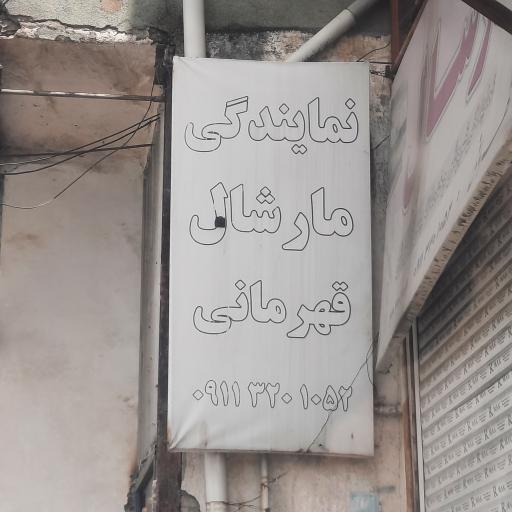 نمایندگی
مارشال
قهرمانی
۰۹۱۱ ۳۲۰ ۱۰۵۲